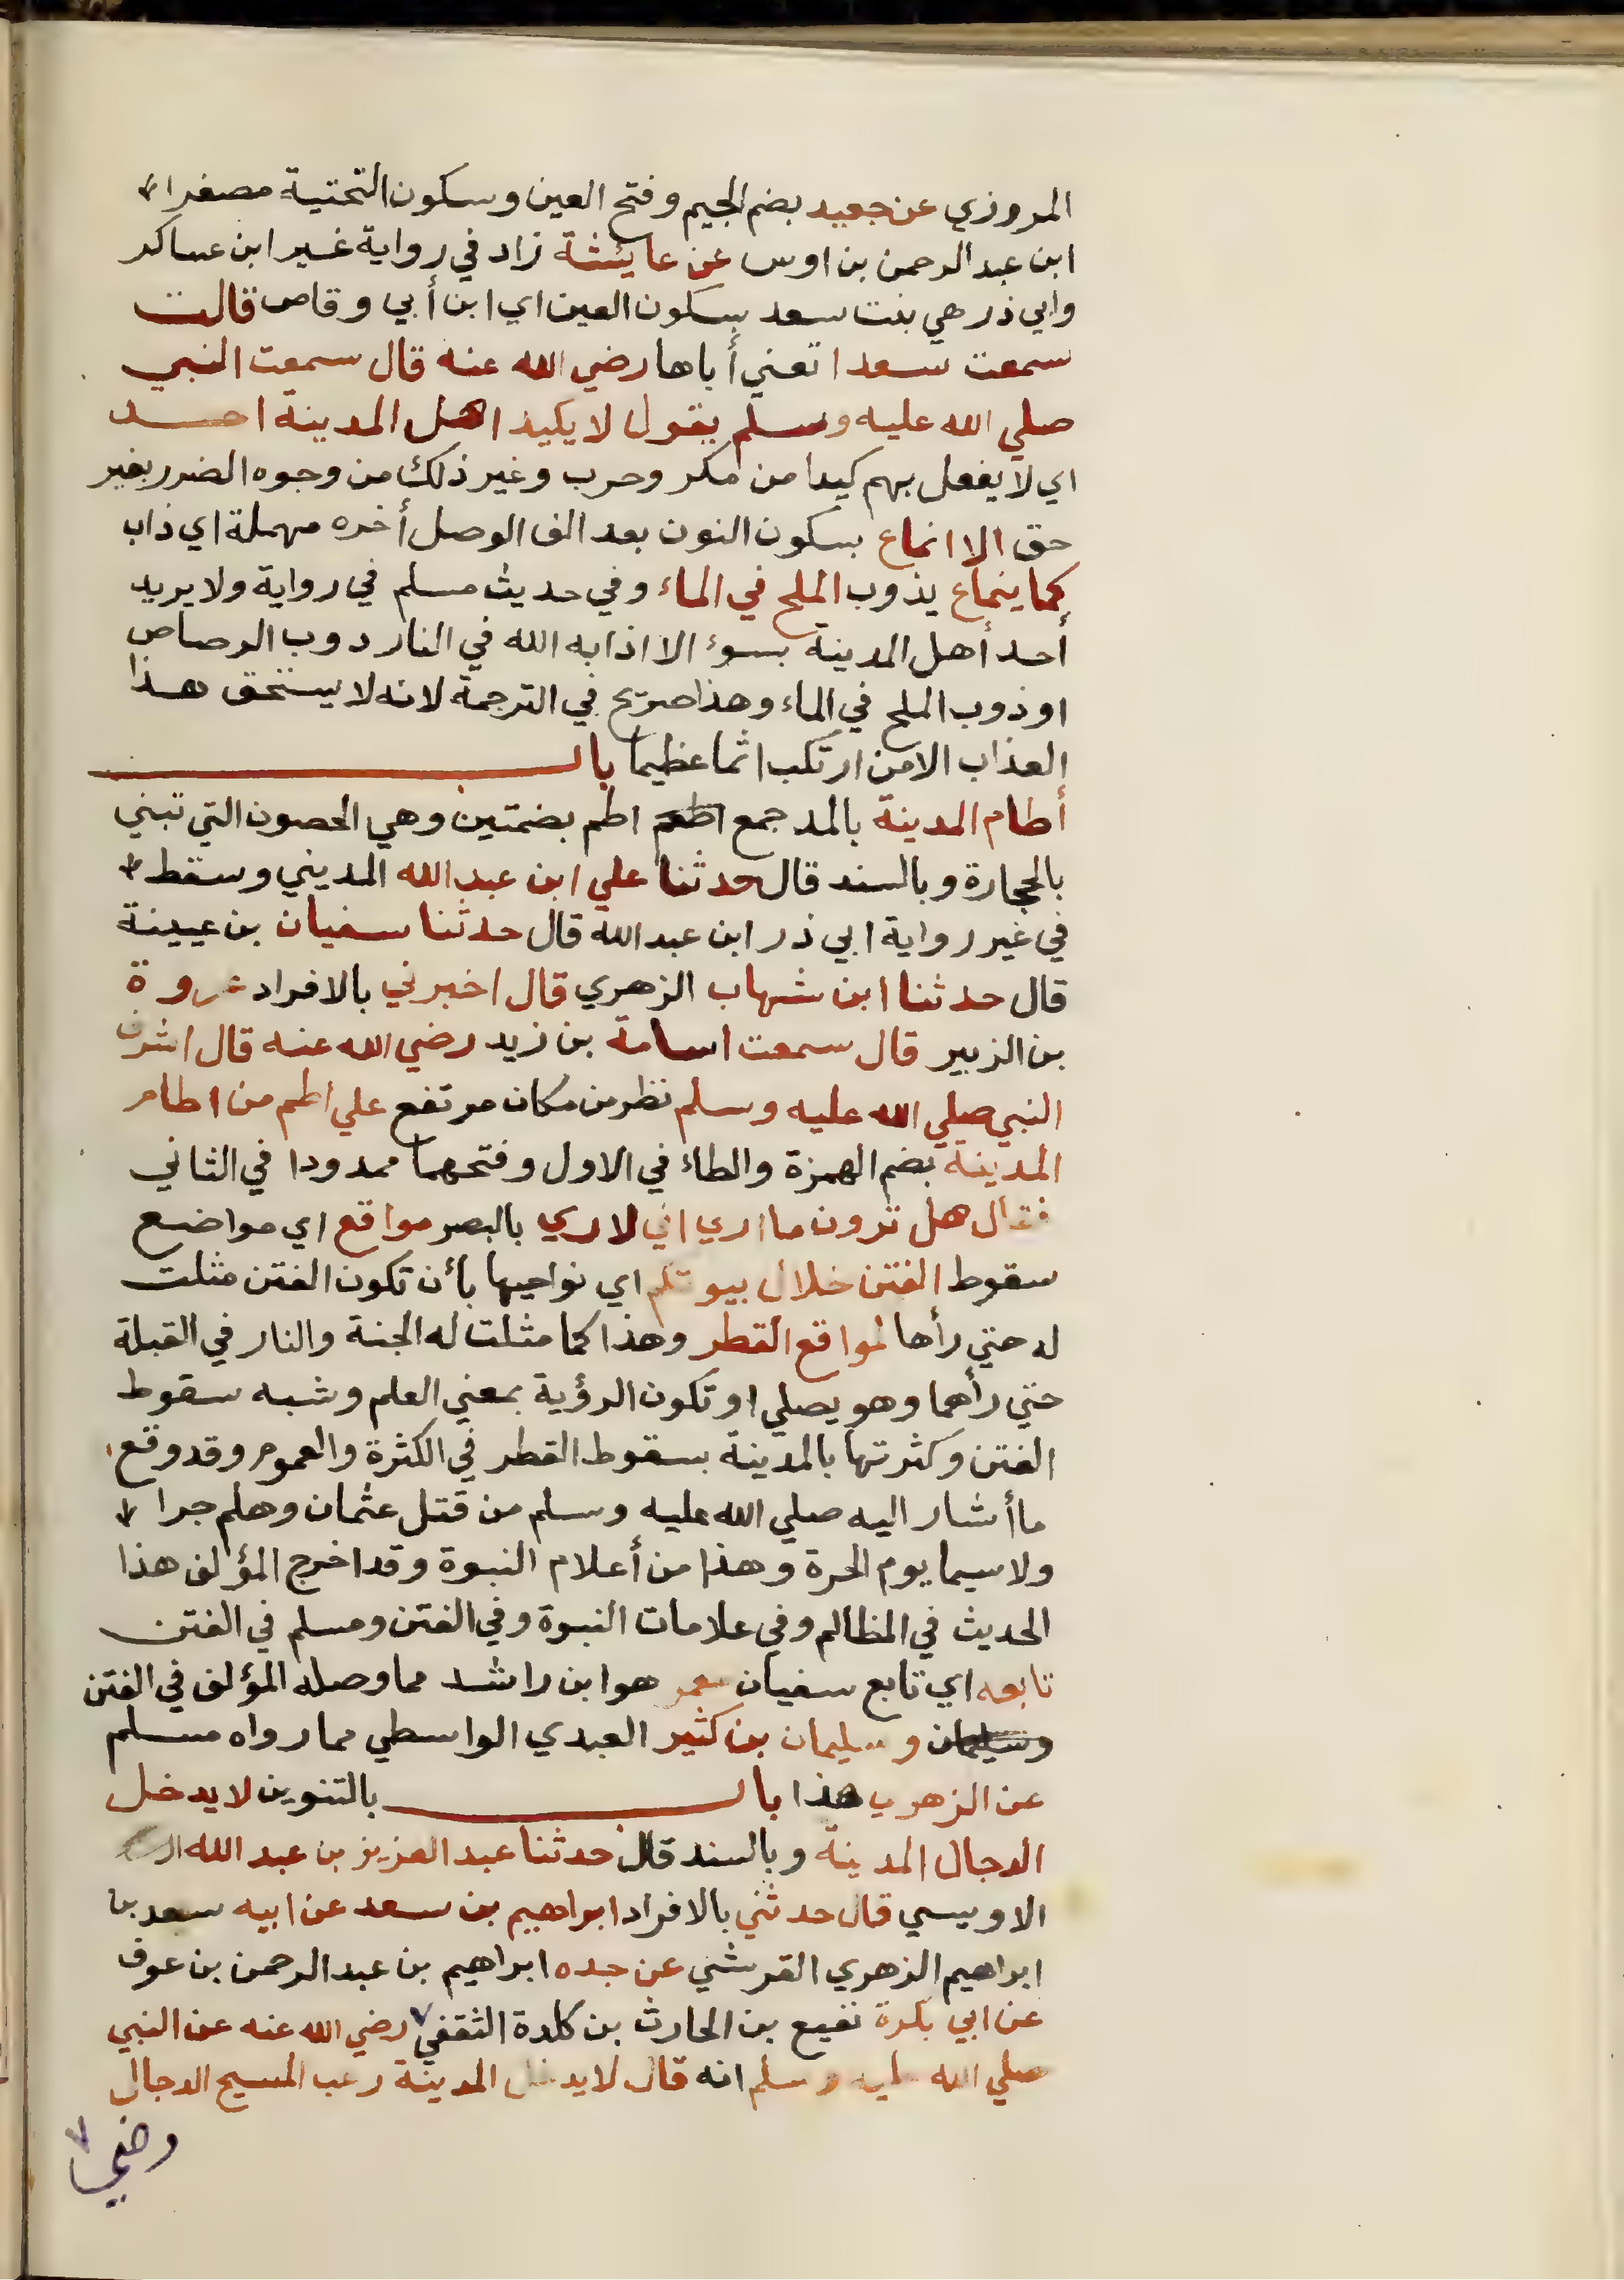 المروزي عن جعيد بضم الجيم وفتح العين وسكون التحتية مصغرا
ابن عبد الرحمن بن اوس عن عايئشة زاد في رواية غير ابن عساكر
وابي ذر هي بنت سعد بسكون العين اي ابن أبي وقاص قالت
سمعت سعدا تعني أباها رضي الله عنه قال سمعت النبي
صلي الله عليه وسلم يقول لا يكيد اهل المدينة احد
اي لا يفعل بهم كيدا من مكر وحرب وغير ذلك من وجوه الضرر بغير
حق الا انماع بسكون النون بعد الف الوصل أخره مهملة اي ذاب
كما ينماع يذوب الملح في الماء وفي حديث مسلم في رواية ولا يريد
أحد أهل المدينة بسوء الا اذابه الله في النار دوب الرصاص
او ذوب الملح في الماء وهذا صريح في الترجمة لانه لا يستحق هذا
العذاب الا من ارتكب اثما عظيما باب
أطام المدينة بالمد جمع اطم اطم بضمتين وهي الحصون التي تبني
بالحجارة وبالسند قال حدثنا علي ابن عبد الله المديني وسقط
في غير رواية ابي ذر ابن عبد الله قال حدثنا سفيان بن عيينة
قال حدثنا ابن شهاب الزهري قال اخبرني بالافراد عروة
بن الزبير قال سمعت اسامة بن زيد رضي الله عنه قال اشرف
النبي صلي الله عليه وسلم نظر من مكان مرتفع علي اطم من اطام
المدينة بضم الهمزة والطاء في الاول وفتحهما ممدودا في الثاني
فقال هل ترون ما اري اني لاري بالبصر مواقع اي مواضع
سقوط الفتن خلال بيوتكم اي نواحيها بأن تكون الفتن مثلت
له حتي رأها لمواقع القطر وهذا كما مثلت له الجنة والنار في القبلة
حتي رأهما وهو يصلي او تكون الرؤية بمعني العلم وشبه سقوط
الفتن وكثرتها بالمدينة بسقوط القطر في الكثرة والعموم وقد وقع
ما أشار اليه صلي الله عليه وسلم من قتل عثمان وهلم جرا
ولاسيما يوم الحرة وهذا من أعلام النبوة وقد اخرج المؤلف هذا
الحديث في المظالم وفي علامات النبوة وفي الفتن ومسلم في الفتن
تابعه اي تابع سفيان معمر هو ابن راشد مما وصله المؤلف في الفتن
وسليمان وسليمان بن كثير العبدي الواسطي مما رواه مسلم
عن الزهري هذا باب بالتنوين لا يدخل
الدجال المدينة وبالسند قال حدثنا عبد العزيز بن عبد الله
الاويسي قال حدثني بالافراد ابراهيم بن سعد عن ابيه سعد بن
ابراهيم الزهري القرشي عن جده ابراهيم بن عبد الرحمن بن عوف
عن ابي بكرة نفيع بن الحارث بن كلدة الثقفي رضي الله عنه عن النبي
صلي الله عليه وسلم انه قال لا يدخل المدينة رعب المسيح الدجال